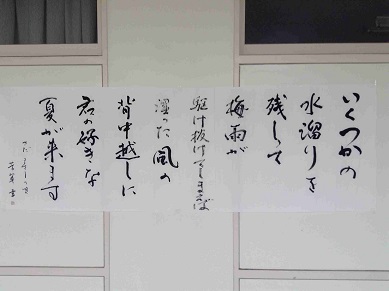 いくつかの
水溜りを
残して
梅雨が
駆け抜けてしまえば
湿った風の
背中越しに
君の好きな
夏が来ます
さだまさし